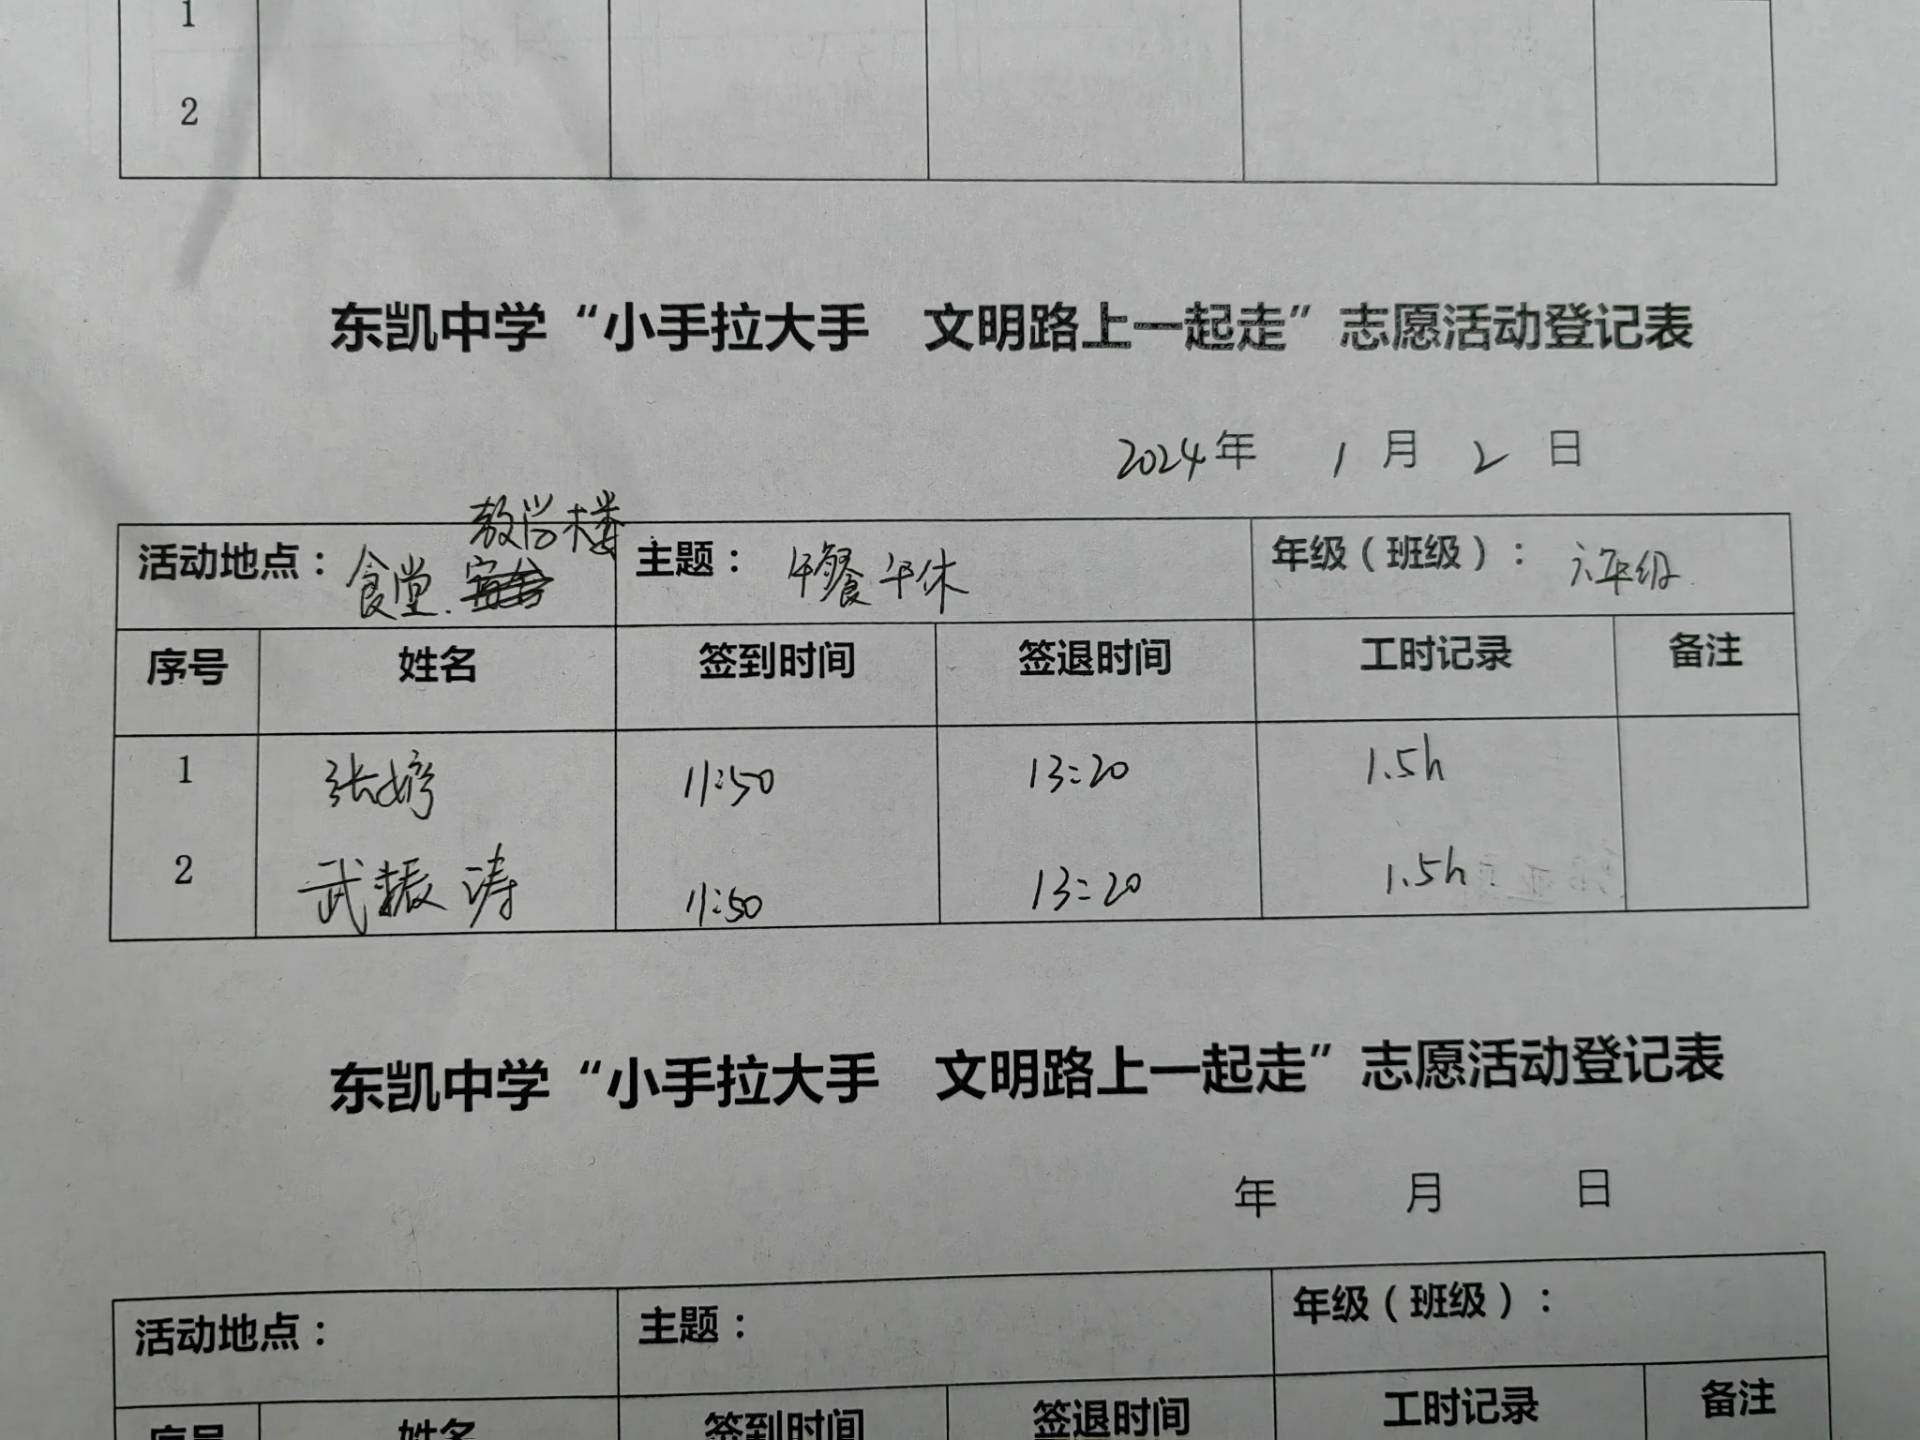 1
2
东凯中学“小手拉大手 文明路上一起走”志愿活动登记表
2024年 1月 2日
活动地点：食堂.教学楼 主题：午餐午休 年级（班级）：六年级
序号 姓名 签到时间 签退时间 工时记录 备注
1 张婷 11:50 13:20 1.5h
2 武振涛 11:50 13:20 1.5h
东凯中学“小手拉大手 文明路上一起走”志愿活动登记表
年 月 日
活动地点： 主题： 年级（班级）：
序号 姓名 签到时间 签退时间 工时记录 备注